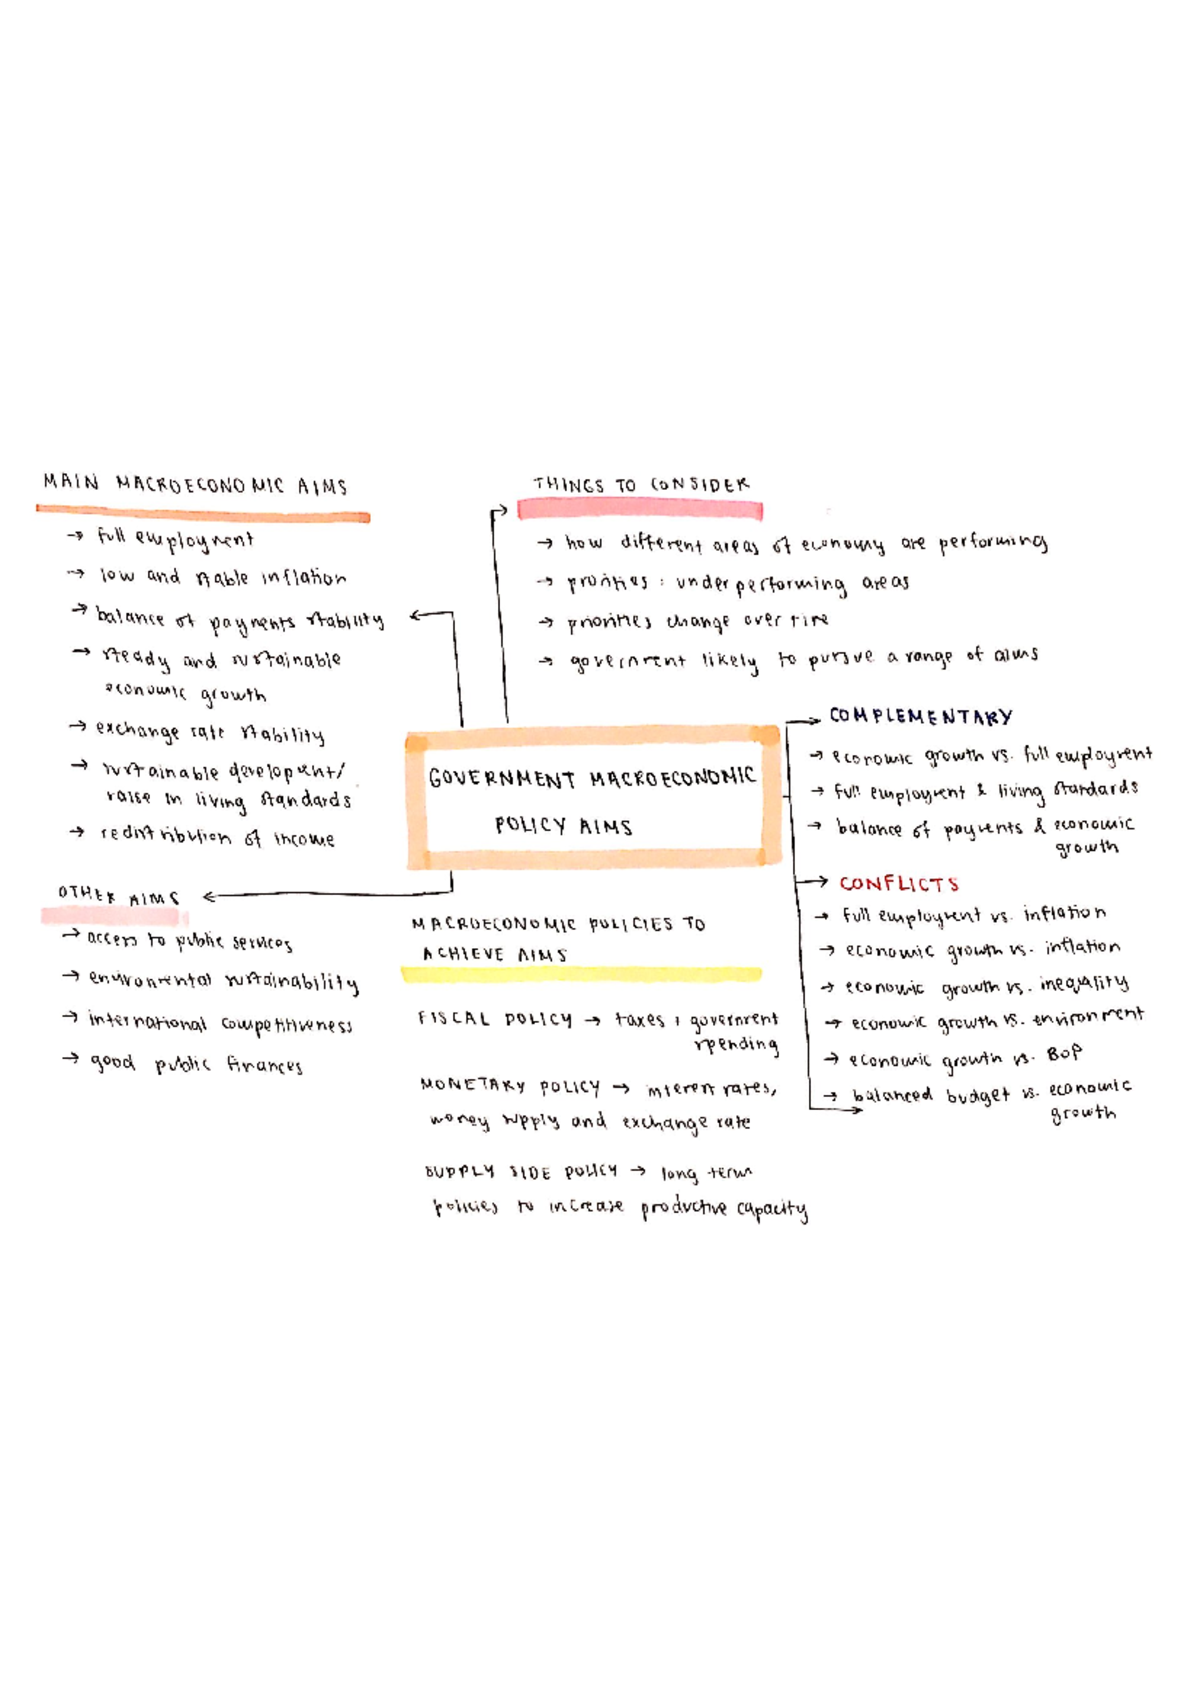 MAIN MACROECONOMIC AIMS
→ full employment
→ low and stable inflation
→ balance of payments stability
→ steady and sustainable
economic growth
→ exchange rate stability
→ sustainable development/
raise in living standards
→ redistribution of income
OTHER AIMS
→ access to public services
→ environmental sustainability
→ international competitiveness
→ good public finances
THINGS TO CONSIDER
→ how different areas of economy are performing
→ priorities : underperforming areas
→ priorities change over time
→ government likely to pursue a range of aims
GOVERNMENT MACROECONOMIC
POLICY AIMS
MACROECONOMIC POLICIES TO
ACHIEVE AIMS
FISCAL POLICY → taxes & government
spending
MONETARY POLICY → interest rates,
money supply and exchange rate
SUPPLY SIDE POLICY → long term
policies to increase productive capacity
COMPLEMENTARY
→ economic growth vs. full employment
→ full employment & living standards
→ balance of payments & economic
growth
CONFLICTS
→ full employment vs. inflation
→ economic growth vs. inflation
→ economic growth vs. inequality
→ economic growth vs. environment
→ economic growth vs. BOP
→ balanced budget vs. economic
growth